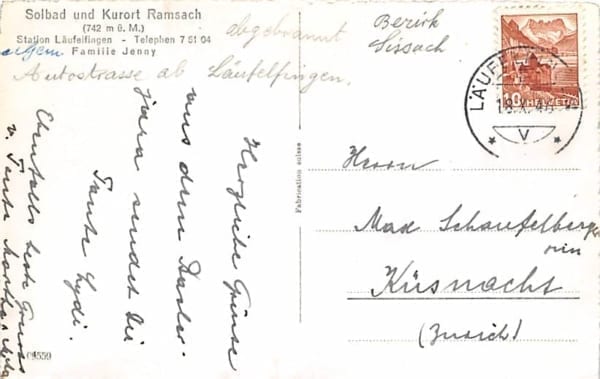 Solbad und Kurort Ramsach
(742 m ü. M.)
Station Läufelfingen - Telephon 7 51 04
Familie Jenny
abgebrannt
Bezirk
Sissach
Autostrasse ab Läufelfingen.
Herzliche Grüsse
aus dem Basler-
jura sendet Dir
Tante Lydi.
Ebenfalls beste Grüsse
v. Tante Martha
Fabrication suisse
10 HELVETIA
LÄUFELFINGEN
18.X.46
V
Herrn
Max Schaufelberger
Küsnacht
(Zürich)
04559